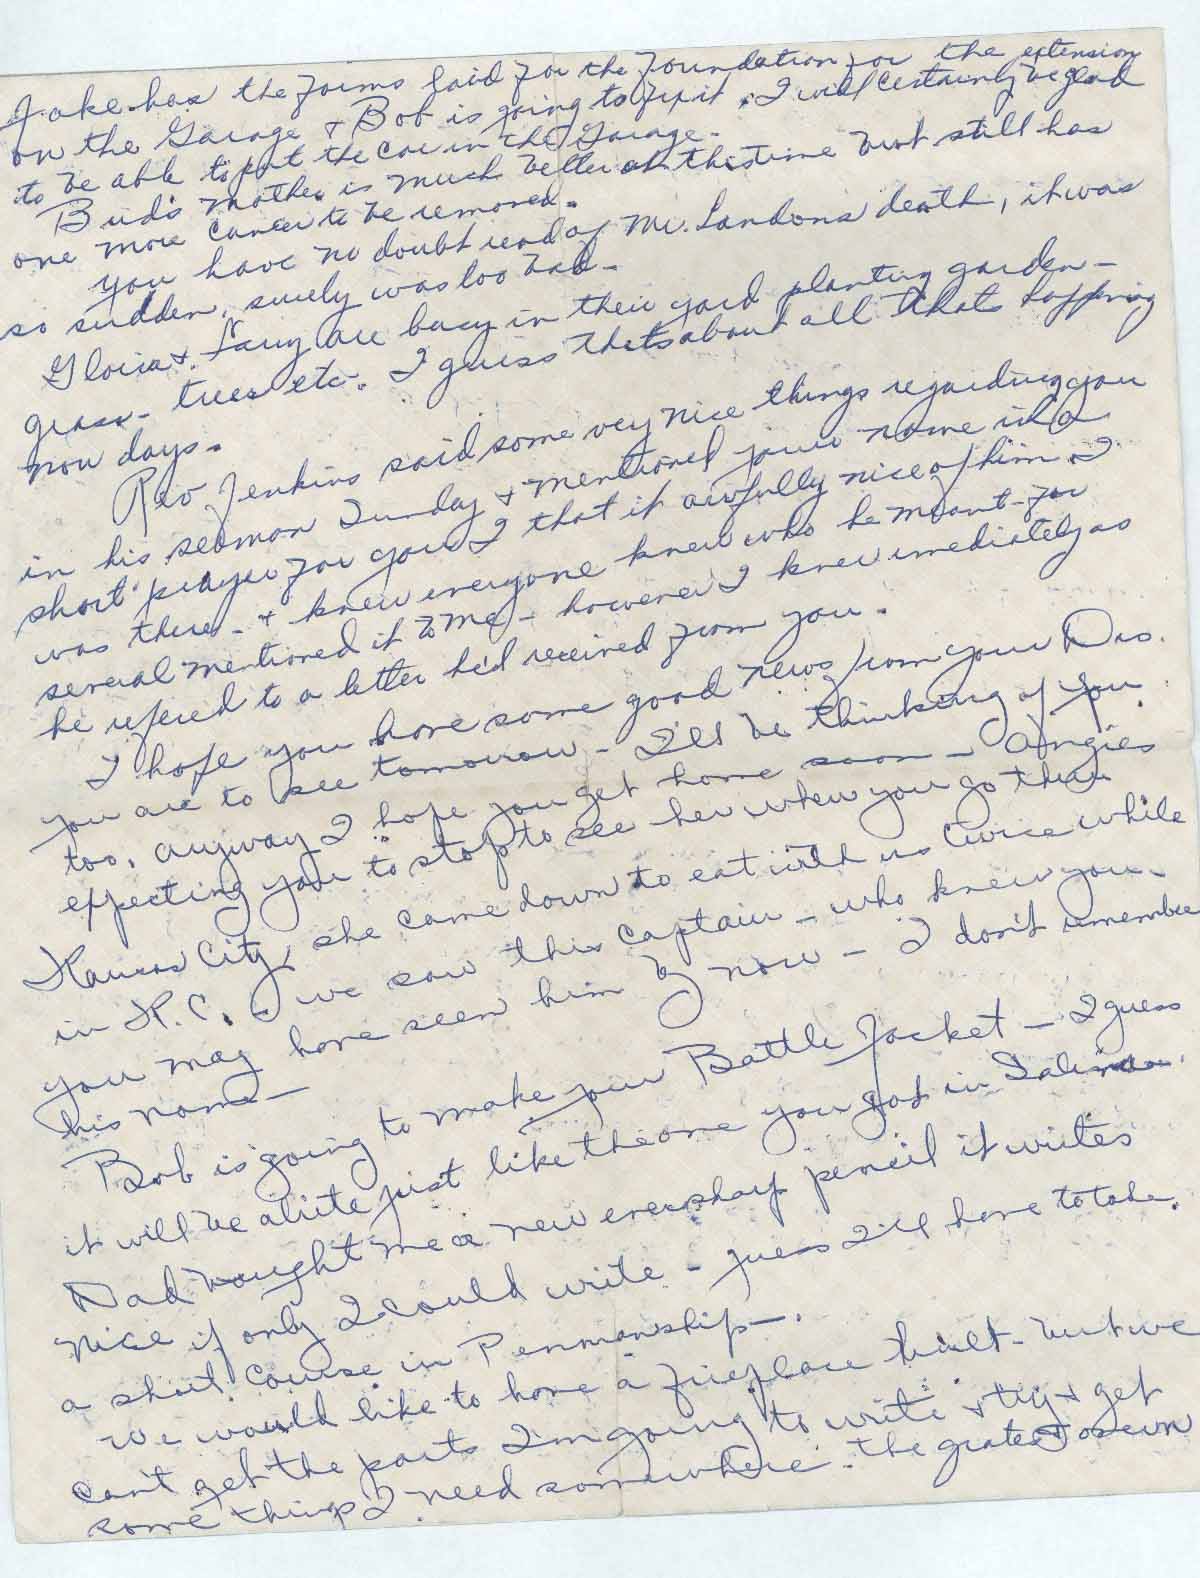 Jake has the forms laid for the foundation for the extension
on the Garage & Bob is going to fix it. I will certainly be glad
to be able to put the car in the Garage.
Bud's mother is much better at this time but still has
one more cancer to be removed.
You have no doubt read of Mr. Landons death, it was
so sudden, surely was too bad.
Gloria & Larry are busy in their yard planting garden -
grass - trees etc. I guess thats about all thats happening
now days.
Rev Jenkins said some very nice things regarding you
in his sermon Sunday & mentioned your name in a
short prayer for you I that it awfully nice of him. I
was there - & knew everyone knew who he meant - for
several mentioned it to me - however I knew imediately as
he refered to a letter he'd received from you.
I hope you have some good news from your Drs.
you are to see tomorrow - I'll be thinking of you
too, anyway I hope you get home soon - Angies
expecting you to stop to see her when you go thru
Kansas City, she came down to eat with us twice while
in K.C. - we saw this captain - who knew you -
you may have seen him by now - I don't remember
his name -
Bob is going to make your Battle Jacket - I guess
it will be a lot just like the one you got in Salina.
Dad bought me a new eversharp pencil it writes
nice if only I could write - guess I'll have to take
a short course in Penmanship -.
We would like to have a fireplace built - but we
can't get the parts I'm going to write & try & get
some things I need somewhere - the grate & oven